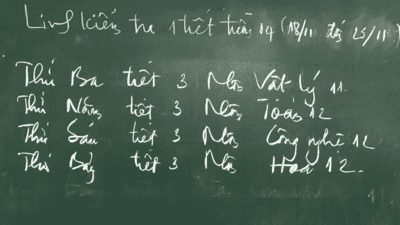 Lịch kiểm tra 1 tiết tuần 14 (18/11 đến 23/11)
Thứ Ba tiết 3 Môn Vật lý 11
Thứ Năm tiết 3 Môn Toán 12
Thứ Sáu tiết 3 Môn Công nghệ 12
Thứ Bảy tiết 3 Môn Hoá 12.